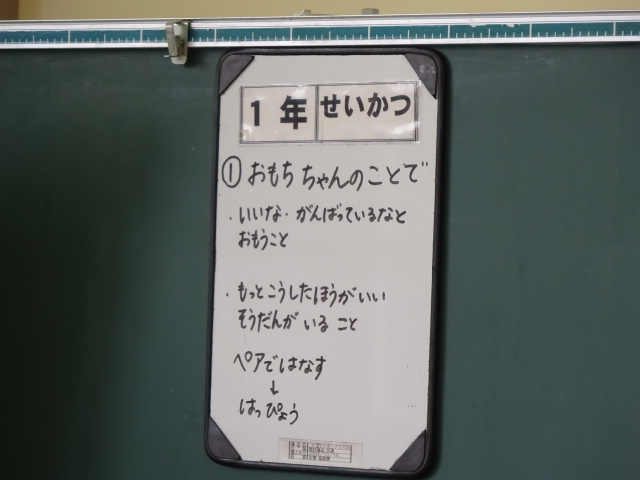 1年 せいかつ
① おもちちゃんのことで
・いいな・がんばっているなと
おもうこと
・もっとこうしたほうがいい
そうだんがいること
ペアではなす
↓
はっぴょう